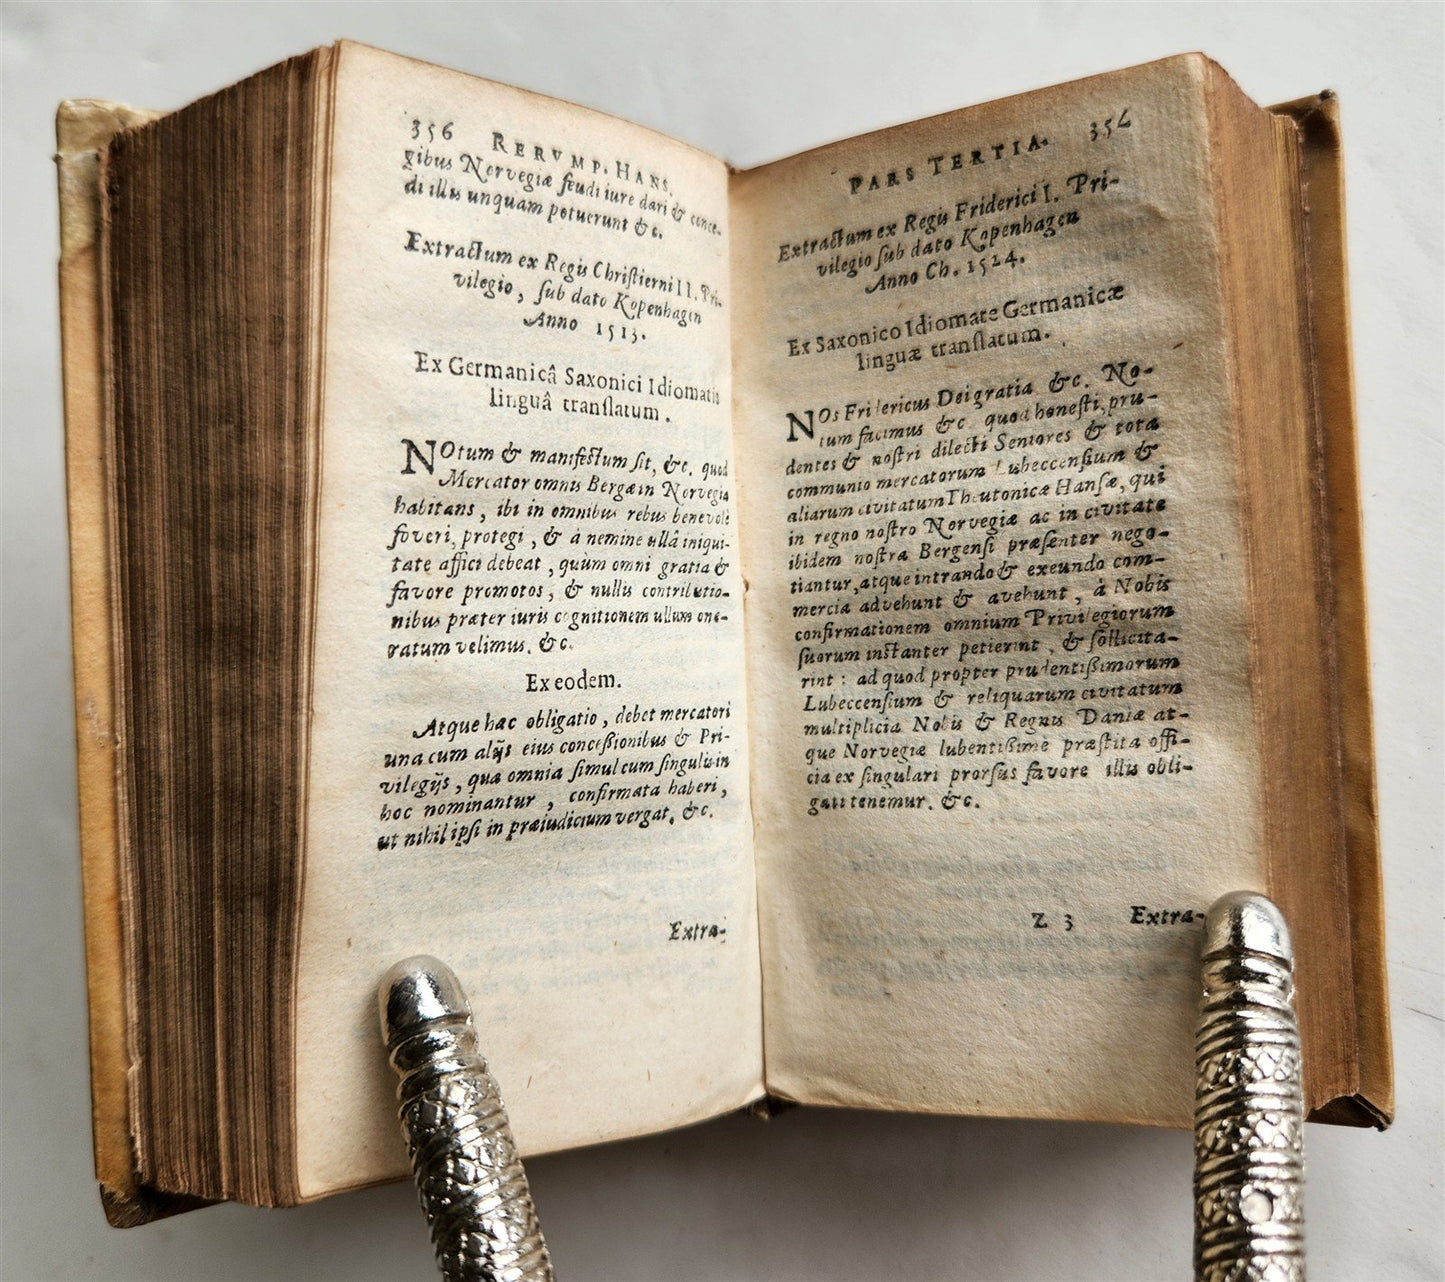 356 RERVMP. HANS.
gibus Norvegiæ feudi iure dari & conce-
di illis unquam potuerunt &c.
Extractum ex Regis Christierni II. Pri-
vilegio, sub dato Kopenhagen
Anno 1513.
Ex Germanicâ Saxonici Idiomatis
linguâ translatum.
NOtum & manifestum sit, &c. quod
Mercator omnis Bergæ in Norvegia
habitans, ibi in omnibus rebus benevolè
foveri, protegi, & à nemine ullâ iniqui-
tate affici debeat, quùm omni gratia &
favore promotos, & nullis contributio-
nibus præter iuris cognitionem ullum one-
ratum velimus. &c.
Ex eodem.
Atque hac obligatio, debet mercatori
una cum alijs eius concessionibus & Pri-
vilegijs, qua omnia simul cum singulis in
hoc nominantur, confirmata haberi,
ut nihil ipsi in præiudicium vergat. &c.
Extra-
PARS TERTIA. 357
Extractum ex Regis Friderici I. Pri-
vilegio sub dato Kopenhagen
Anno Ch. 1524.
Ex Saxonico Idiomate Germanicæ
linguæ translatum.
NOs Fridericus Dei gratia &c. No-
tum facimus &c. quod honesti, pru-
dentes & nostri dilecti Seniores & tota
communio mercatorum Lubeccensium &
aliarum civitatum Theutonicæ Hansæ, qui
in regno nostro Norvegiæ ac in civitate
ibidem nostra Bergensi præsenter nego-
tiantur, atque intrando & exeundo com-
mercia advehunt & avehunt, à Nobis
confirmationem omnium Privilegiorum
suorum instanter petierint, & sollicita-
rint: ad quod propter prudentissimorum
Lubeccensium & reliquarum civitatum
multiplicia Nobis & Regnis Daniæ at-
que Norvegiæ lubentissime præstita offi-
cia ex singulari prorsus favore illis obli-
gati tenemur. &c.
Z 3 Extra-